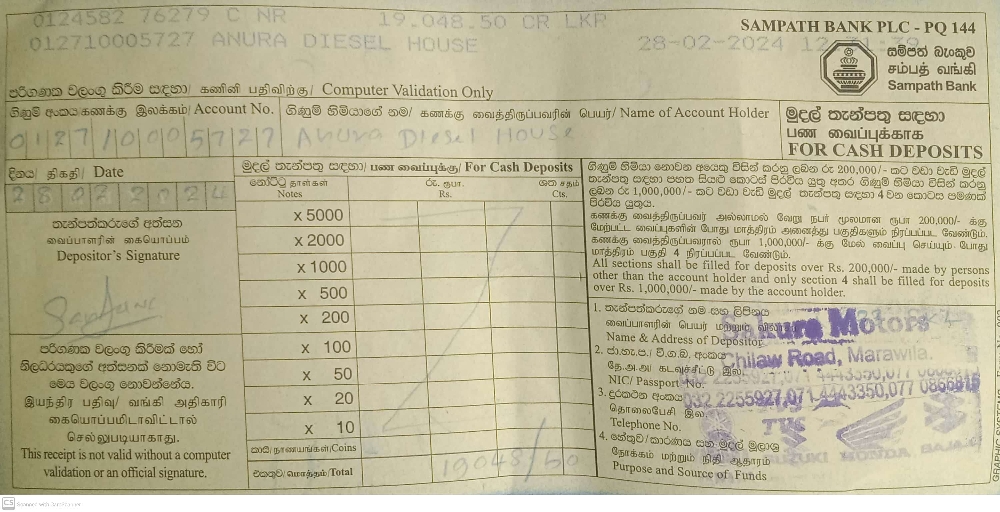 0124582 76279 C NR 19,048.50 CR LKR
012710005727 ANURA DIESEL HOUSE 28-02-2024
SAMPATH BANK PLC - PQ 144
සම්පත් බැංකුව
சம்பத் வங்கி
Sampath Bank
පරිගණක වලංගු කිරීම සඳහා/ கணினி பதிவிற்கு/ Computer Validation Only
ගිණුම් අංකය/கணக்கு இலக்கம்/ Account No.
012710005727
ගිණුම් හිමියාගේ නම/ கணக்கு வைத்திருப்பவரின் பெயர்/ Name of Account Holder
Anura Diesel House
මුදල් තැන්පතු සඳහා
பண வைப்புக்காக
FOR CASH DEPOSITS
දිනය/ திகதி/ Date
28022024
තැන්පත්කරුගේ අත්සන
வைப்பாளரின் கையொப்பம்
Depositor's Signature
පරිගණක වලංගු කිරීමක් හෝ
නිලධරයකුගේ අත්සනක් නොමැති විට
මෙය වලංගු නොවන්නේය.
இயந்திர பதிவு/ வங்கி அதிகாரி
கையொப்பமிடாவிட்டால்
செல்லுபடியாகாது.
This receipt is not valid without a computer
validation or an official signature.
මුදල් තැන්පතු සඳහා/ பண வைப்புக்கு/ For Cash Deposits
නෝට්ටු தாள்கள்
Notes
රු. ரூபா.
Rs.
ශත சதம்
Cts.
x 5000
x 2000
x 1000
x 500
x 200
x 100
x 50
x 20
x 10
කාසි/ நாணயங்கள்/Coins
එකතුව/மொத்தம்/Total
19048/50
ගිණුම් හිමියා නොවන අයෙකු විසින් කරනු ලබන රු 200,000/- කට වඩා වැඩි මුදල්
තැන්පතු සඳහා පහත සියළු කොටස් පිරවිය යුතු අතර ගිණුම් හිමියා විසින් කරනු
ලබන රු 1,000,000/- කට වඩා වැඩි මුදල් තැන්පතු සඳහා 4 වන කොටස පමණක්
පිරවිය යුතුය.
கணக்கு வைத்திருப்பவர் அல்லாமல் வேறு நபர் மூலமான ரூபா 200,000/- க்கு
மேற்பட்ட வைப்புகளின் போது மாத்திரம் அனைத்து பகுதிகளும் நிரப்பப்பட வேண்டும்.
கணக்கு வைத்திருப்பவரால் ரூபா 1,000,000/- க்கு மேல் வைப்பு செய்யும் போது
மாத்திரம் பகுதி 4 நிரப்பப்பட வேண்டும்.
All sections shall be filled for deposits over Rs. 200,000/- made by persons
other than the account holder and only section 4 shall be filled for deposits
over Rs. 1,000,000/- made by the account holder.
1. තැන්පත්කරුගේ නම සහ ලිපිනය
வைப்பாளரின் பெயர் மற்றும்
Name & Address of Depositor
Sakura Motors
Chilaw Road, Marawila.
2. ජා.හැ.ප./ වි.ග.බ. අංකය
தே.அ.அ/ கடவுச்சீட்டு இல.
NIC/ Passport No.
032 2255927,071 4443350,077 0866615
3. දුරකථන අංකය
தொலைபேசி இல.
Telephone No.
TVS
SUZUKI HONDA BAJAJ
4. හේතුව/කාරණය සහ මුදල් මූලාශ්‍ර
நோக்கம் மற்றும் நிதி ஆதாரம்
Purpose and Source of Funds
CS Scanned with CamScanner